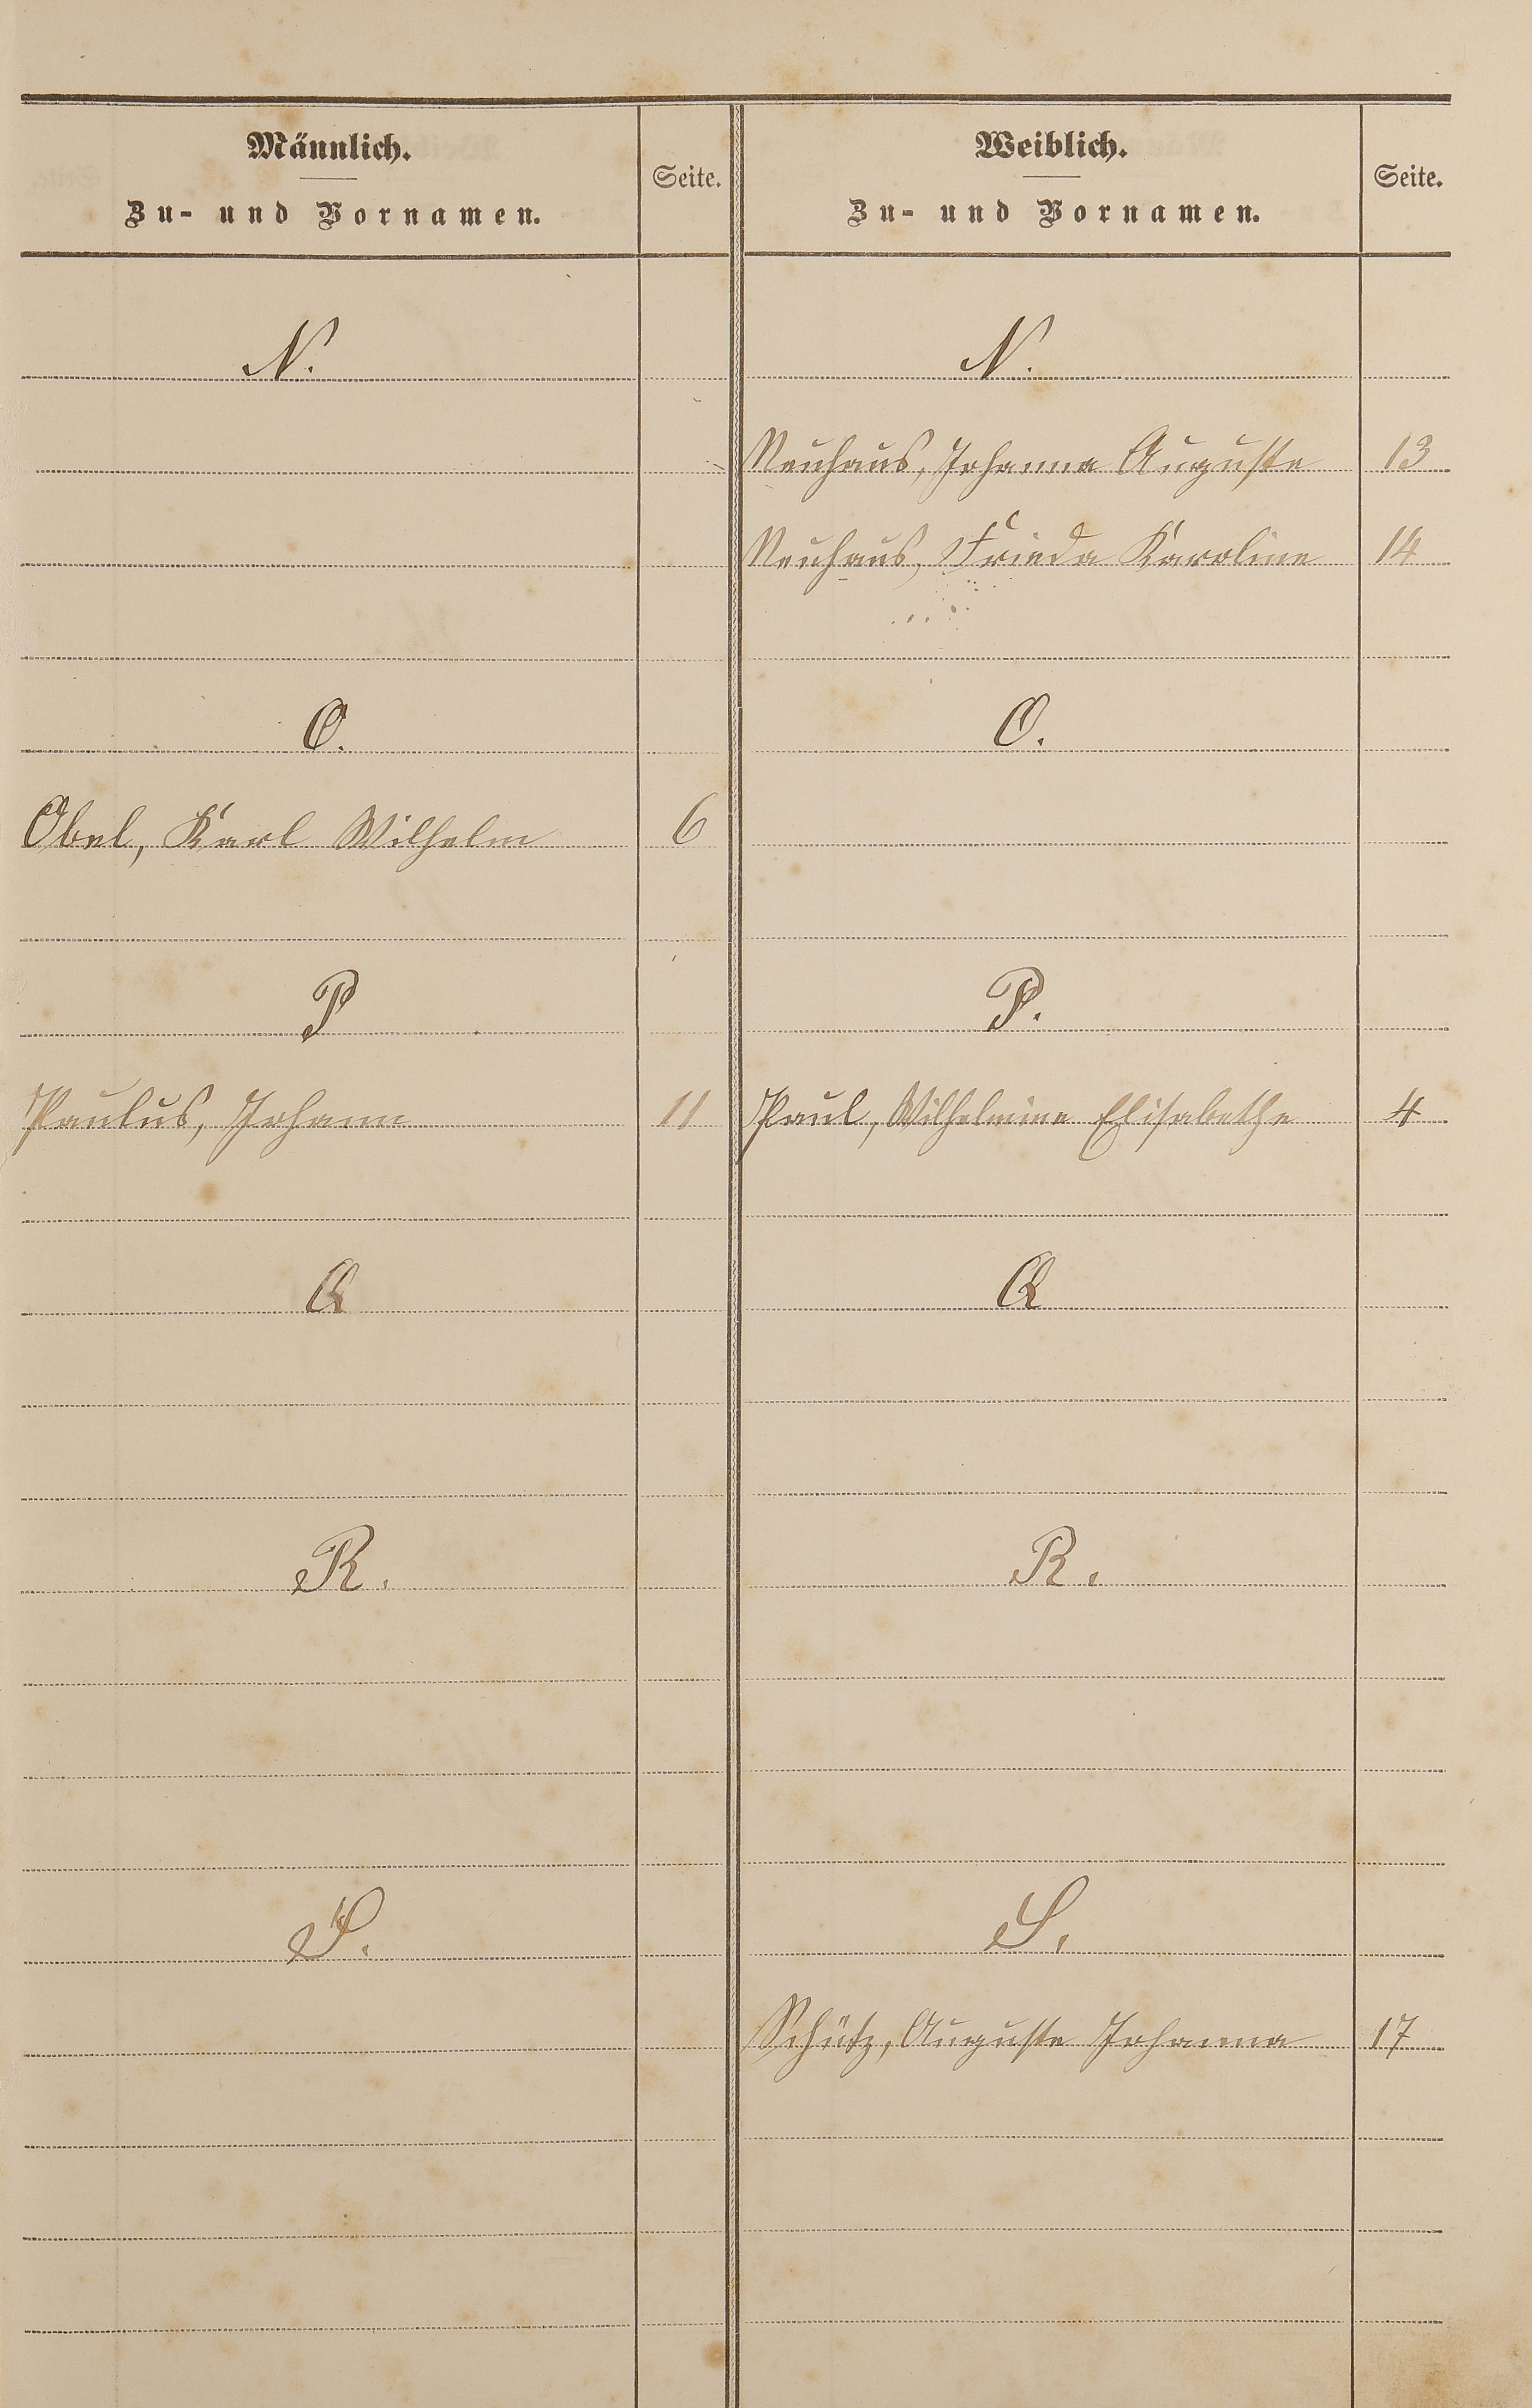 Männlich.
Zu- und Vornamen.
Seite.
Weiblich.
Zu- und Vornamen.
Seite.
N.
N.
Neuhaus, Johanna Auguste 13
Neuhaus, Frieda Karoline 14
O.
O.
Obel, Karl Wilhelm 6
P
P.
Paulus, Johann 11
Paul, Wilhelmine Elisabethe 4
Q
Q
R.
R.
S.
S.
Schütz, Auguste Johanna 17